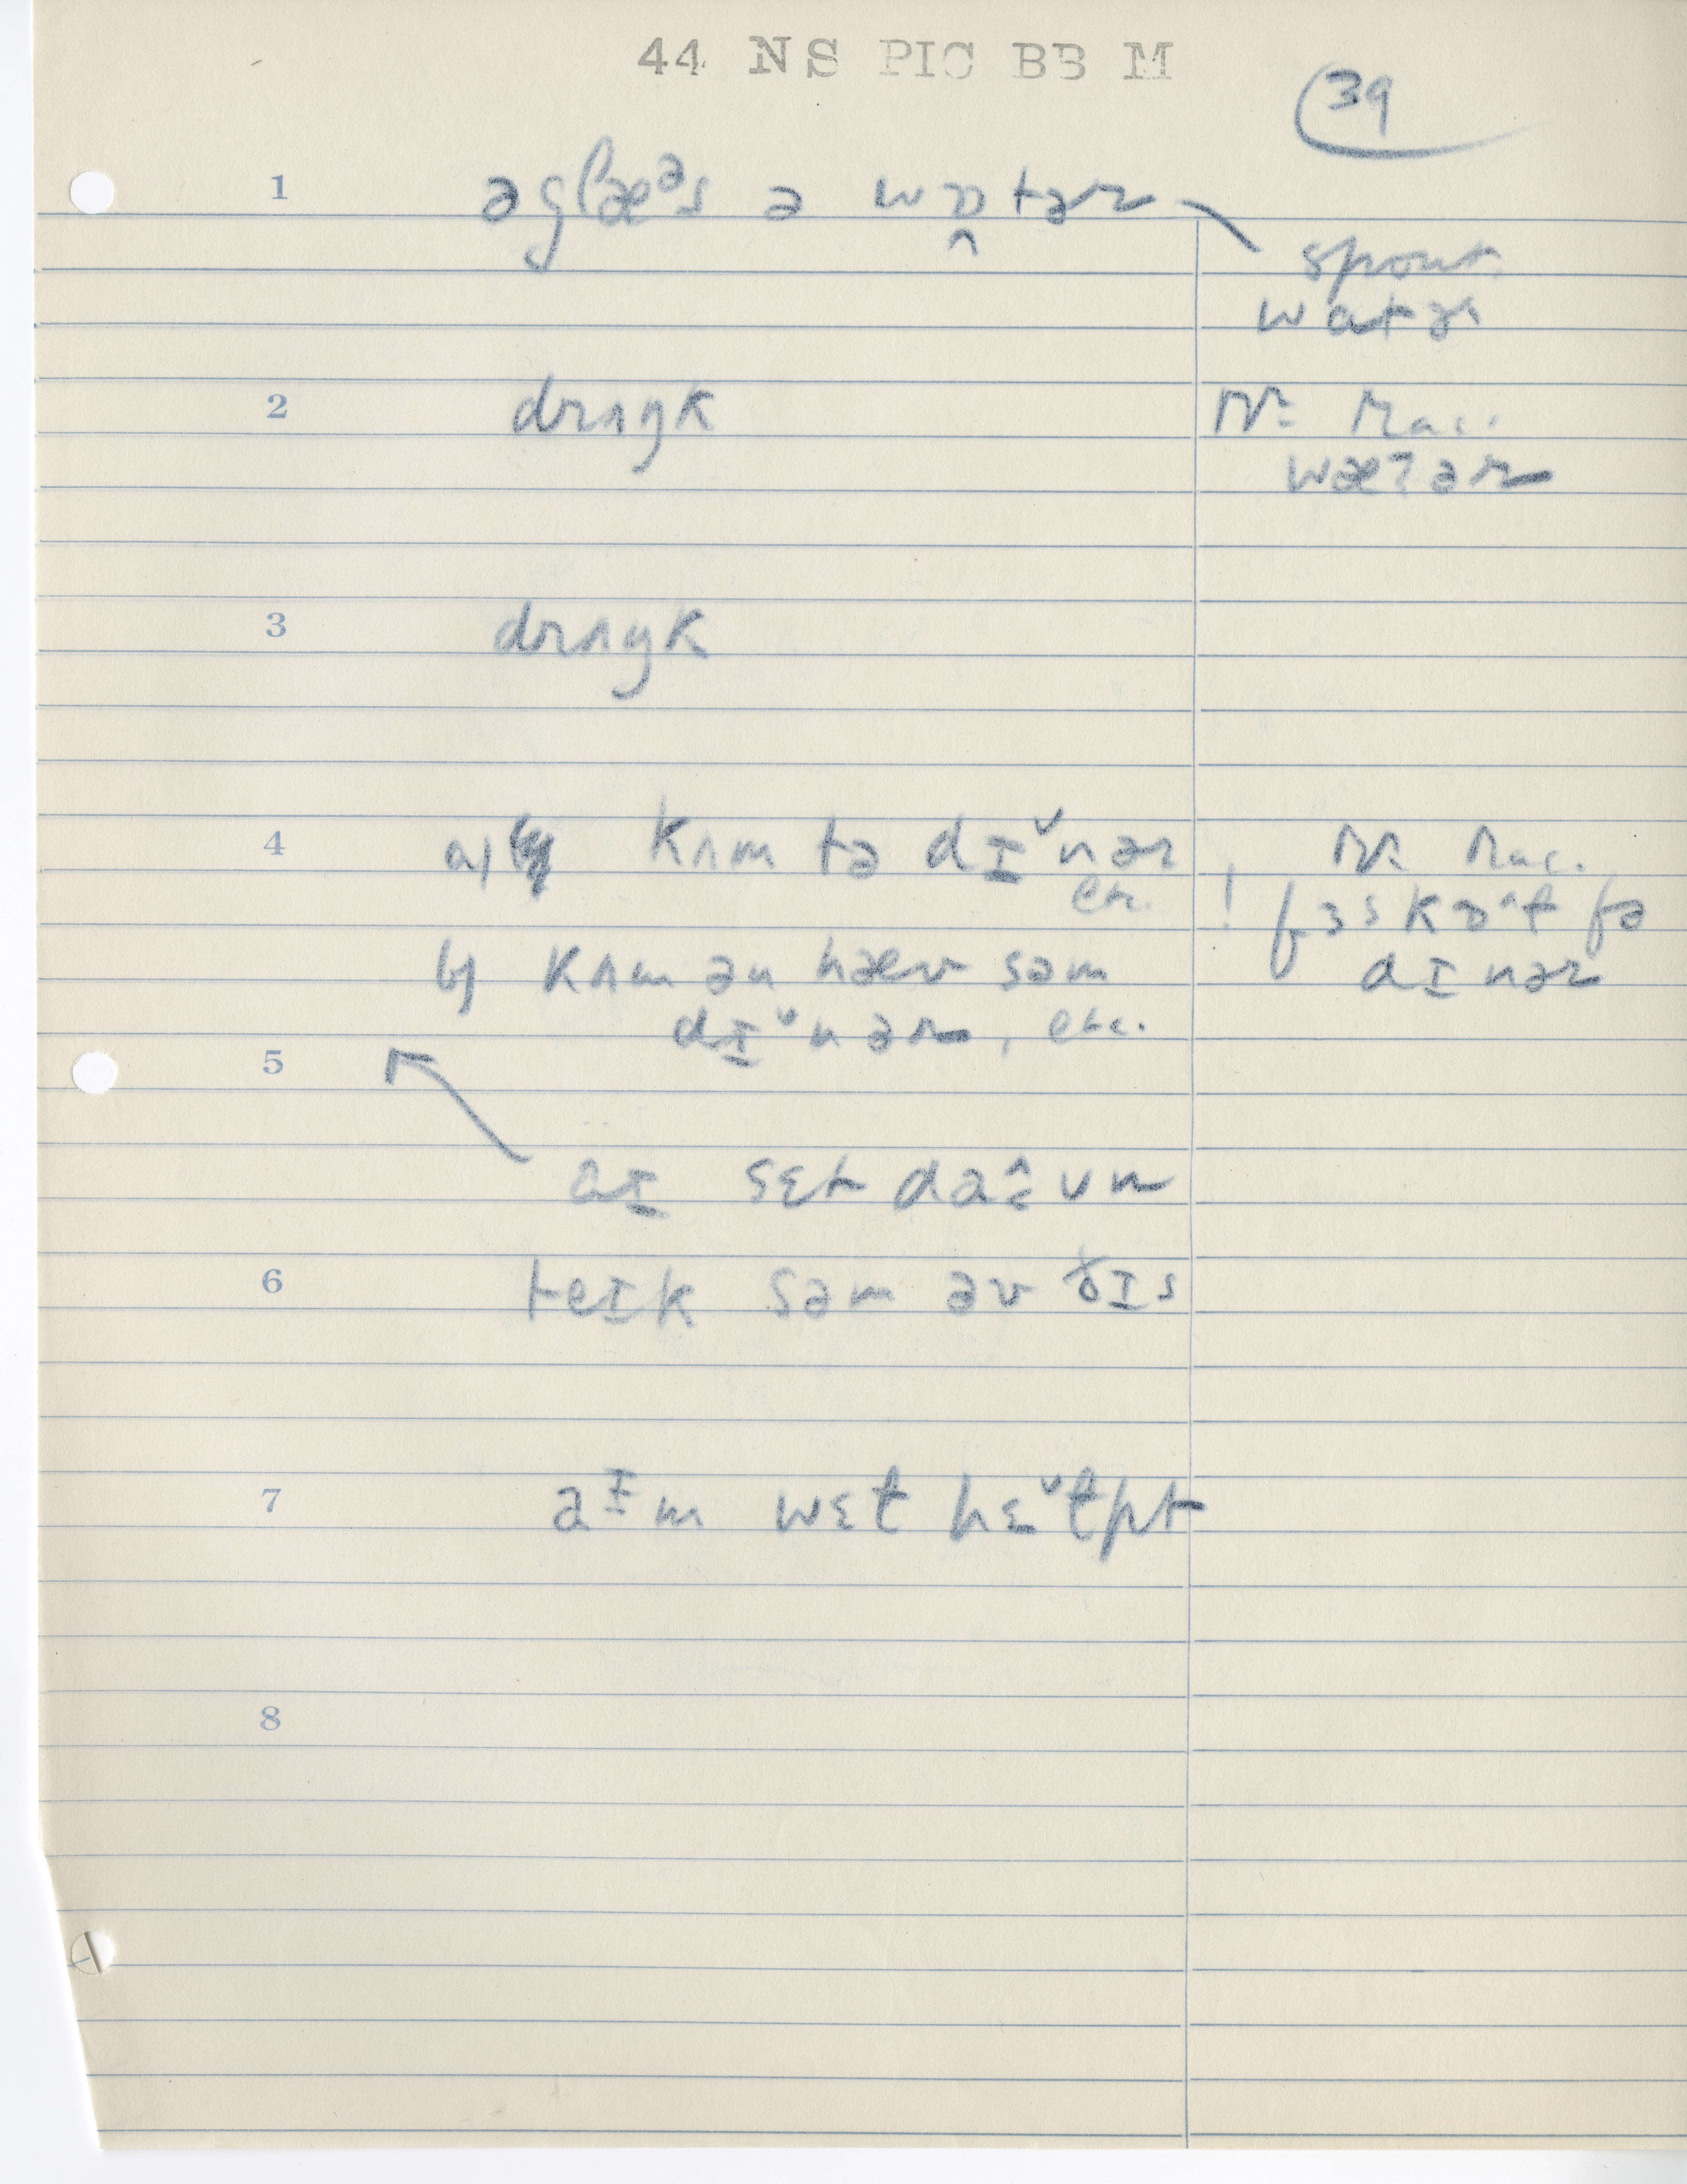 44 NS PIC BB M
39
1 əglæᵊs ə wɒ̭tər
spont.
watər
2 drʌŋk
Mr. Mac.
wæʔər
3 drʌŋk
4 a) kʌm tə dɪ˅nər
etc.
Mr. Mac.
! fɜs kɒ^t fə
dɪnər
b) kʌm ən hæv səm
dɪ˅nər, etc.
5
aɪ sɛt daʊn
6 teɪk səm əv ðɪs
7 aɪm wɛt hɛ˅tpt
8